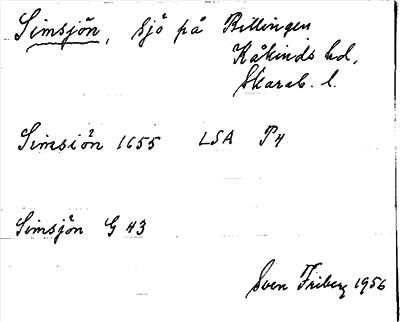 Simsjön, sjö på Billingen
Kåkinds hd,
Skarab. l.
Simsiön 1655 LSA P4
Simsjön G 43
Sven Friberg 1956